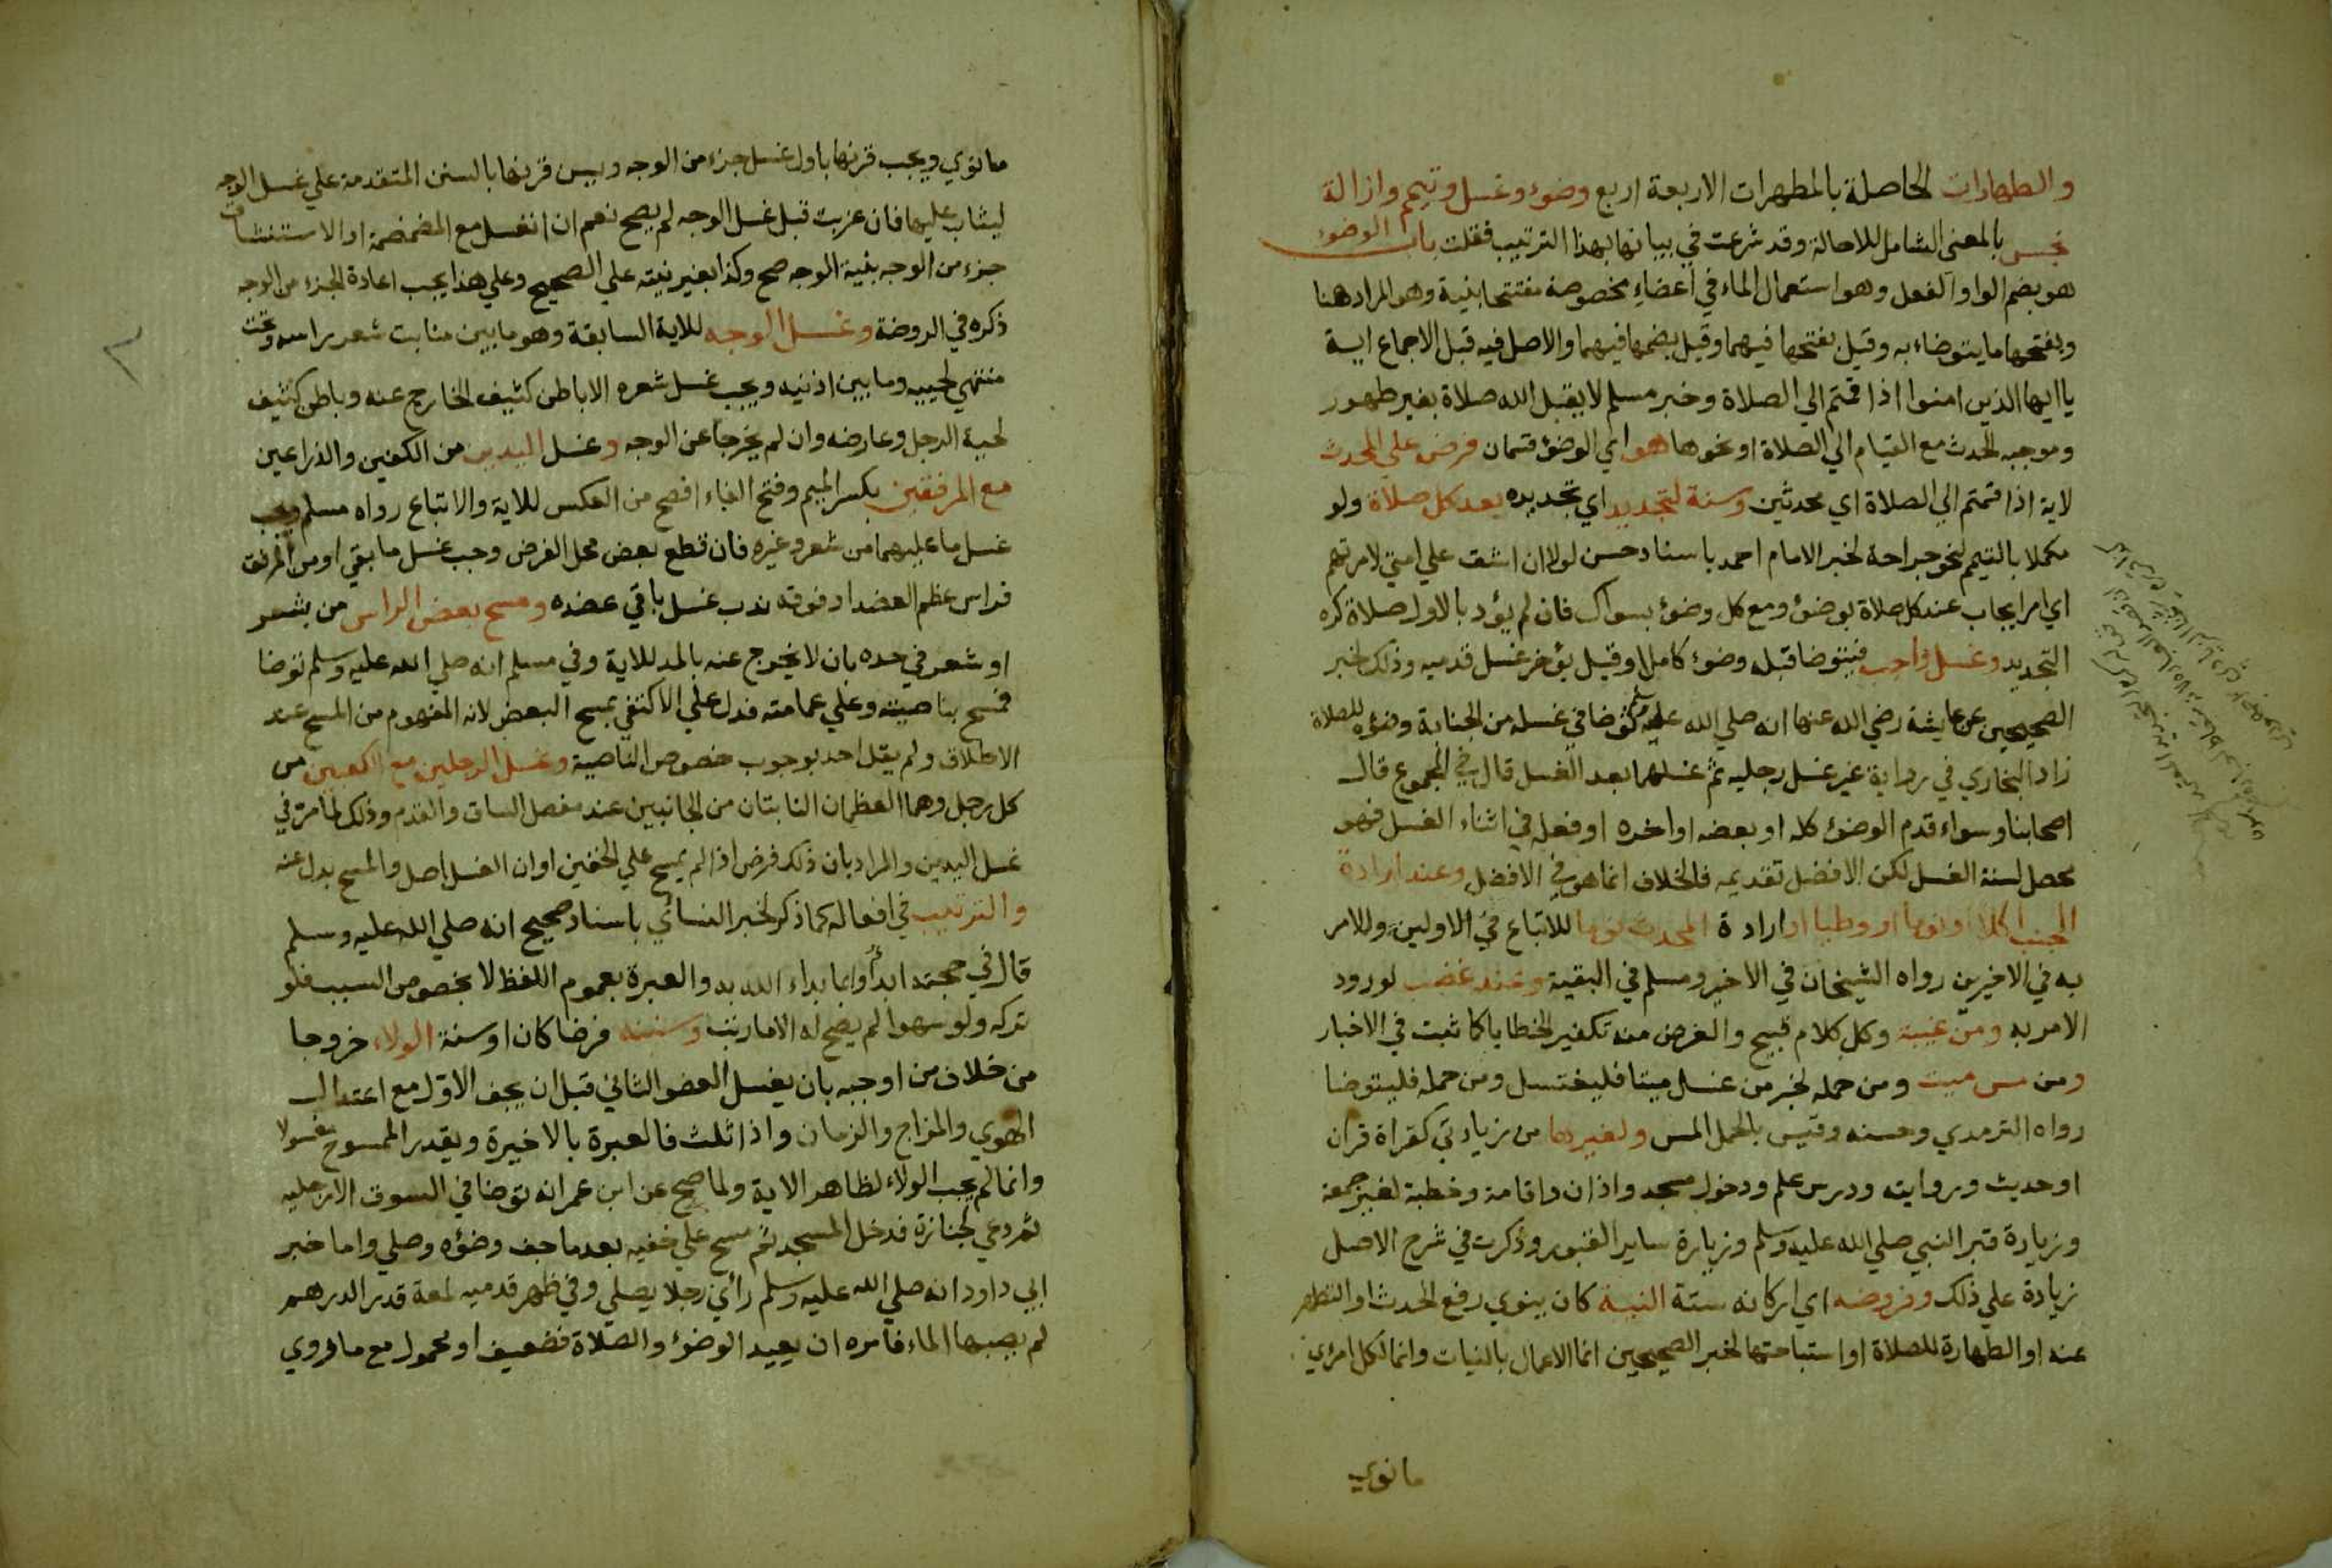 والطهارات الحاصلة بالمطهرات الاربعة اربع وضوء وغسل وتيمم وازالة
نجس بالمعنى الشامل للاحالة وقد شرعت في بيانها بهذا الترتيب فقلت باب الوضوء
هو بضم الواو الفعل وهو استعمال الماء في اعضاء مخصوصة مفتتحا بنية وهو المراد هنا
وبفتحها ما يتوضاء به وقيل بفتحها فيهما وقيل بضمها فيهما والاصل فيه قبل الاجماع اية
ياايها الذين امنوا اذا قمتم الي الصلاة وخبر مسلم لا يقبل الله صلاة بغير طهور
وموجبه الحدث مع القيام الي الصلاة او نحوها هو اي الوضؤ قسمان فرض علي المحدث
لاية اذا قمتم الي الصلاة اي محدثين وسنة لتجديد اي تجديده بعد كل صلاة ولو
مكملا بالتيمم لنحو جراحة لخبر الامام احمد باسناد حسن لولا ان اشق علي امتي لامرتهم
اي امر ايجاب عند كل صلاة بوضوئ ومع كل وضوئ بسواك فان لم يؤد بالاول صلاة كره
التجديد وغسل واجب فيتوضا قبله وضوء كاملا وقيل يؤخر غسل قدميه وذلك لخبر
الصحيحين عن عايشة رضي الله عنها انه صلي الله عليه وسلم توضا في غسله من الجنابة وضؤه للصلاة
زاد البخاري في رواية غير غسل رجليه ثم غسلهما بعد الغسل قال في المجموع قال
اصحابنا وسواء قدم الوضوء كله او بعضه او اخره او فعله في اثناء الغسل فهو
محصل لسنة الغسل لكن الافضل تقديمه فالخلاف انما هو في الافضل وعند ارادة
الجنب اكلا او نوما او وطيا او ارادة المحدث نوما للاتباع في الاولين وللامر
به في الاخيرين رواه الشيخان في الاخير ومسلم في البقية وعند غضب لورود
الامر به ومن غيبة وكل كلام قبيح والغرض منه تكفير الخطايا كما ثبت في الاخبار
ومن مس ميت ومن حمله لخبر من غسل ميتا فليغتسل ومن حمله فليتوضا
رواه الترمدي وحسنه وقيس بالحمل المس ولغيرها من زيادتي كقراة قران
او حديث وروايته ودرس علم ودخول مسجد واذان واقامة وخطبة لغير جمعة
وزيارة قبر النبي صلي الله عليه وسلم وزيارة ساير القبور وذكرت في شرح الاصل
زيادة علي ذلك وفروضه اي اركانه ستة النية كان ينوي رفع الحدث او التطهر
عنه او الطهارة للصلاة او استباحتها لخبر الصحيحين انما الاعمال بالنيات وانما لكل امرئ
ما نوي
ما نوي ويجب قرنها باول غسل جزء من الوجه ويسن قرنها بالسنن المتقدمة علي غسل الوجه
ليثاب عليها فان عزبت قبل غسل الوجه لم يصح نعم ان انغسل مع المضمضة او الاستنشاق
جزء من الوجه بنية الوجه صح وكذا بغير نيته علي الصحيح وعلي هذا يجب اعادة الجزء من الوجه
ذكره في الروضة وغسل الوجه للاية السابقة وهو ما بين منابت شعر راسه وتحت
منتهي لحييه وما بين اذنيه ويجب غسل شعره الا باطن كثيف الخارج عنه وباطن كثيف
لحية الرجل وعارضه وان لم يخرجا عن الوجه وغسل اليدين من الكفين والذراعين
مع المرفقين بكسر الميم وفتح الفاء افصح من العكس للاية والاتباع رواه مسلم ويجب
غسل ما عليهما من شعر وغيره فان قطع بعض محل الفرض وجب غسل ما بقي او من المرفق
فراس عظم العضد او فوقه ندب غسل باقي عضده ومسح بعض الراس من بشر
او شعر في حده بان لا يخرج عنه بالمد للاية وفي مسلم انه صلي الله عليه وسلم توضا
فمسح بناصيته وعلي عمامته فدل علي الاكتفي بمسح البعض لانه المفهوم من المسح عند
الاطلاق ولم يقل احد بوجوب خصوص الناصية وغسل الرجلين مع الكعبين من
كل رجل وهما العظمان الناتئان من الجانبين عند مفصل الساق والقدم وذلك لما مر في
غسل اليدين والمراد بان ذلك فرض اذا لم يمسح علي الخفين او ان الغسل اصل والمسح بدل عنه
والترتيب في افعاله كما ذكر لخبر النسائي باسناد صحيح انه صلي الله عليه وسلم
قال في حجته ابدأوا بما بداء الله به والعبرة بعموم اللفظ لا بخصوص السبب فلو
تركه ولو سهوا لم يصح له الا ما رتب وسننه فرضا كان او سنة الولاء خروجا
من خلاف من اوجبه بان يغسل العضو الثاني قبل ان يجف الاول مع اعتدال
الهوي والمزاج والزمان واذا ثلث فالعبرة بالاخيرة ويقدر الممسوح مغسولا
وانما لم يجب الولاء لظاهر الاية ولما صح عن ابن عمر انه توضا في السوق الا رجليه
ثم دعي لجنازة فدخل المسجد ثم مسح علي خفيه بعد ما جف وضؤه وصلي واما خبر
ابي داود انه صلي الله عليه وسلم رأي رجلا يصلي وفي ظهر قدميه لمعة قدر الدرهم
لم يصبها الماء فامره ان يعيد الوضؤ والصلاة فضعيف او محمول مع ما روي